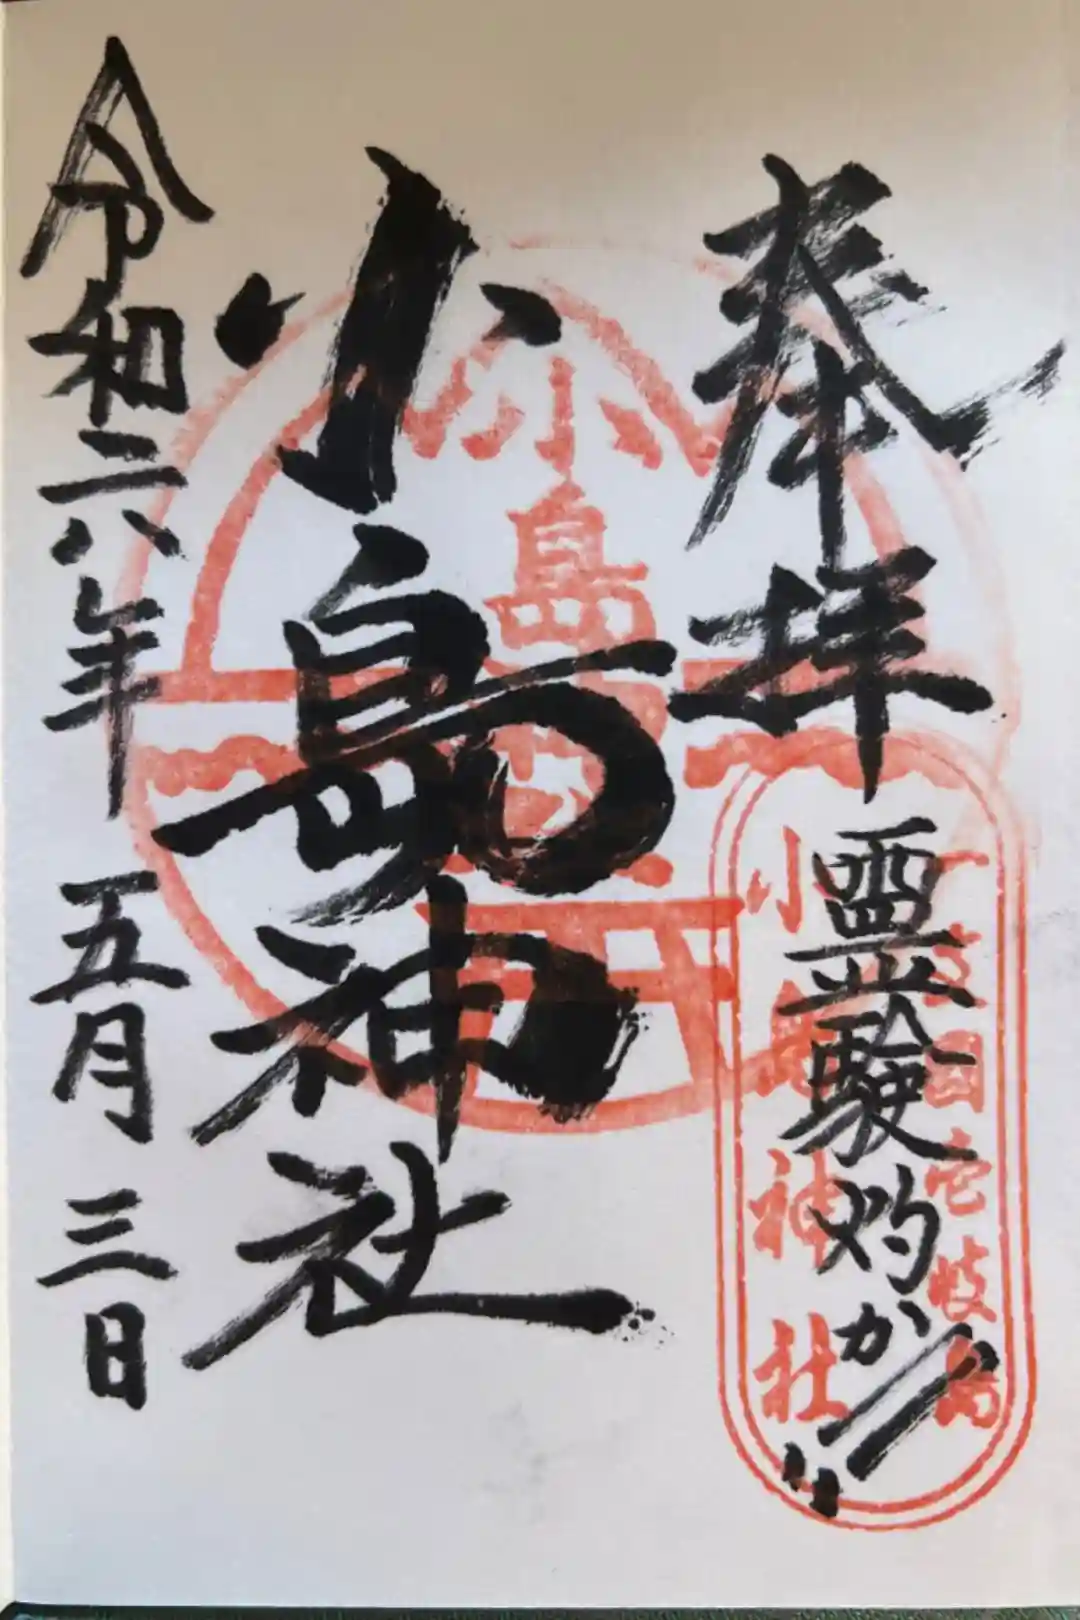 奉拝
霊験灼か!!
一支国壱岐島
小島神社
小島
小島神社
令和六年 五月 三日